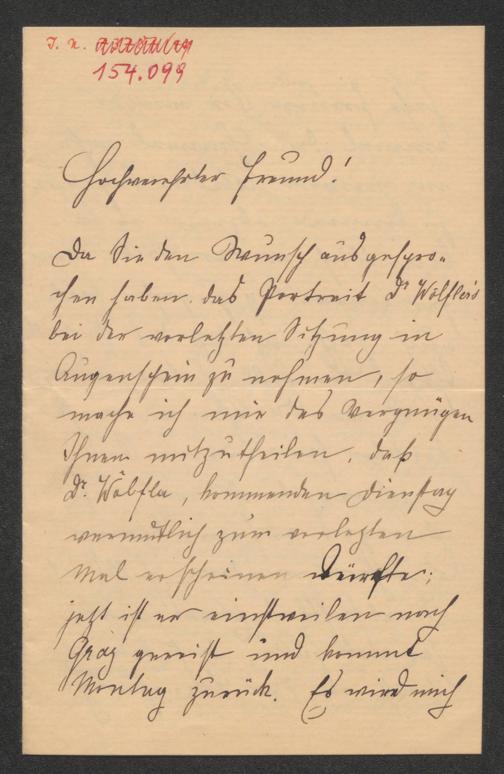 I. N.
154.099
Hochverehrter Freund!
Da Sie den Wunsch ausgespro-
chen haben. das Portrait Dr Wölfler's
bei der vorletzten Sitzung in
Augenschein zu nehmen, so
mache ich mir das Vergnügen
Ihnen mitzutheilen, daß
Dr. Wölfla, kommenden Dienstag
vermuthlich zum vorletzten
Mal erscheinen dürfte;
jetzt ist er einstweilen nach
Graz gereist und kommt
Montag zurück. Es wird mich